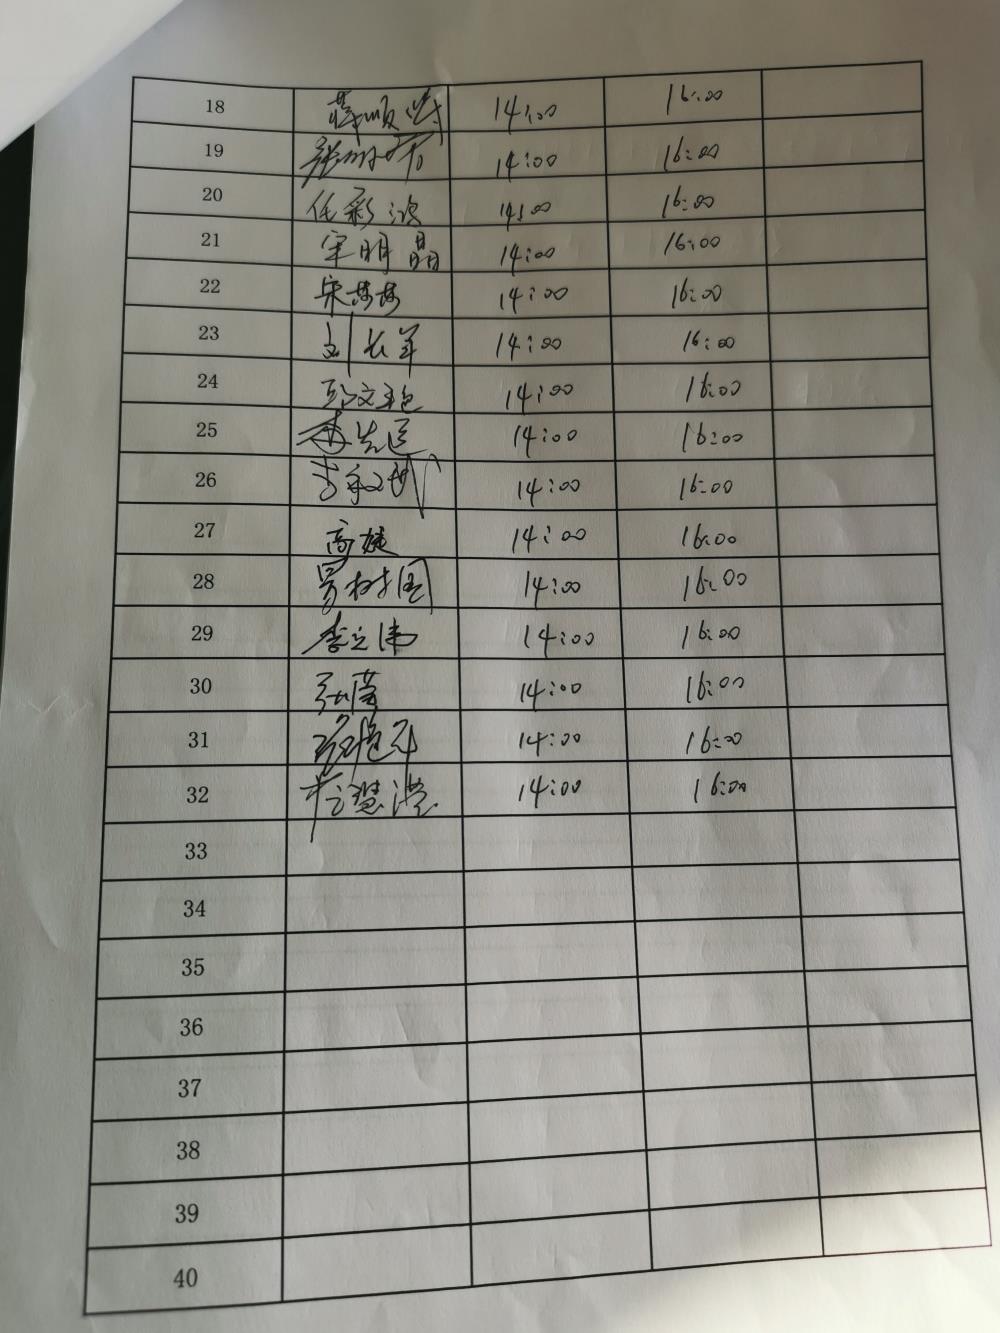 18 顺 14:00 16:00
19 张 14:00 16:00
20 任彩 14:00 16:00
21 宋明晶 14:00 16:00
22 宋莎莎 14:00 16:00
23 刘长军 14:00 16:00
24 文艳 14:00 16:00
25 14:00 16:00
26 李 14:00 16:00
27 高婕 14:00 16:00
28 树国 14:00 16:00
29 李立伟 14:00 16:00
30 张莹 14:00 16:00
31 14:00 16:00
32 慧滢 14:00 16:00
33
34
35
36
37
38
39
40